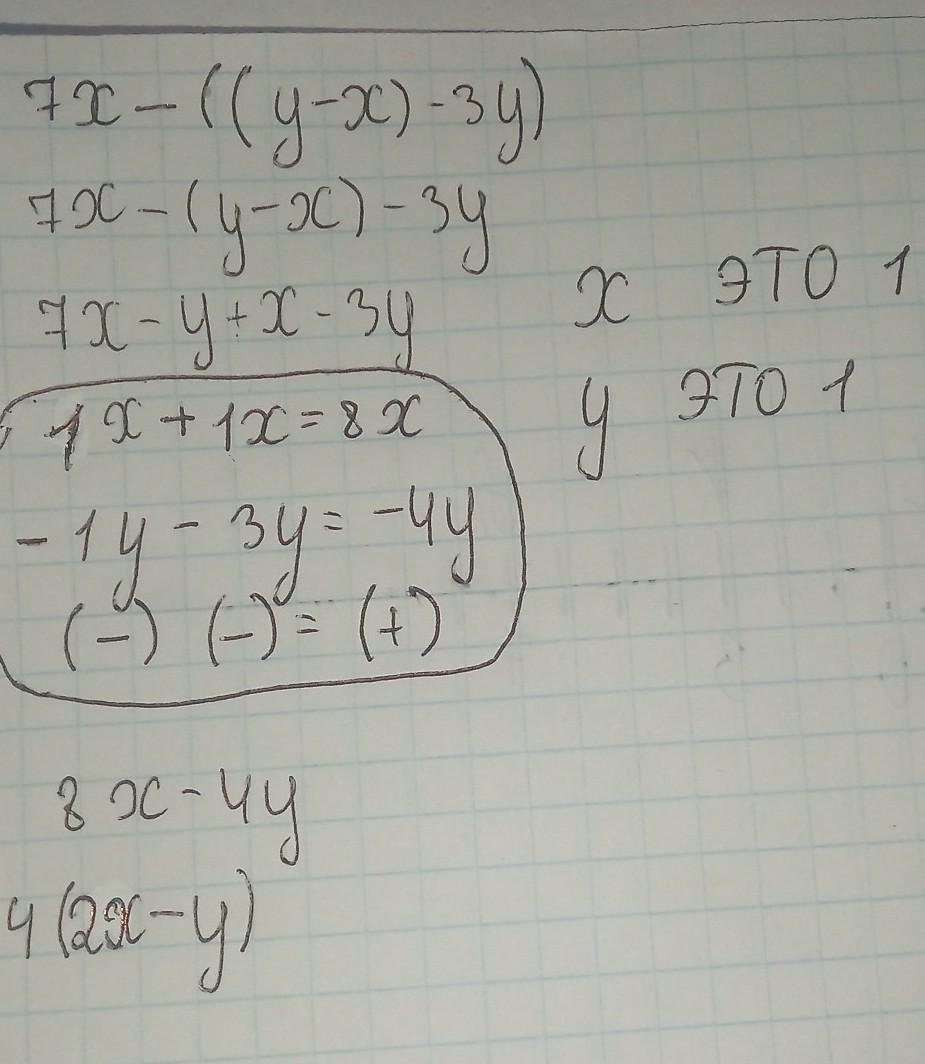 7x - ((y-x) - 3y)
7x - (y-x) - 3y
7x - y + x - 3y
x это 1
y это 1
1x + 1x = 8x
-1y - 3y = -4y
(-) (-) = (+)
8x - 4y
4(2x - y)